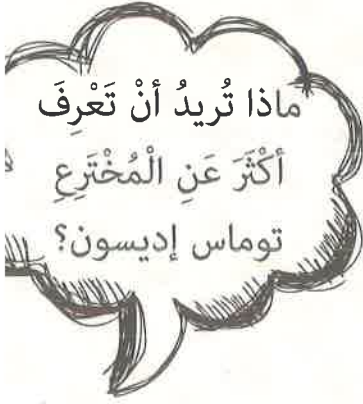 ماذا تُريدُ أنْ تَعْرِفَ
أكْثَرَ عَنِ الْمُخْتَرِعِ
توماس إديسون؟